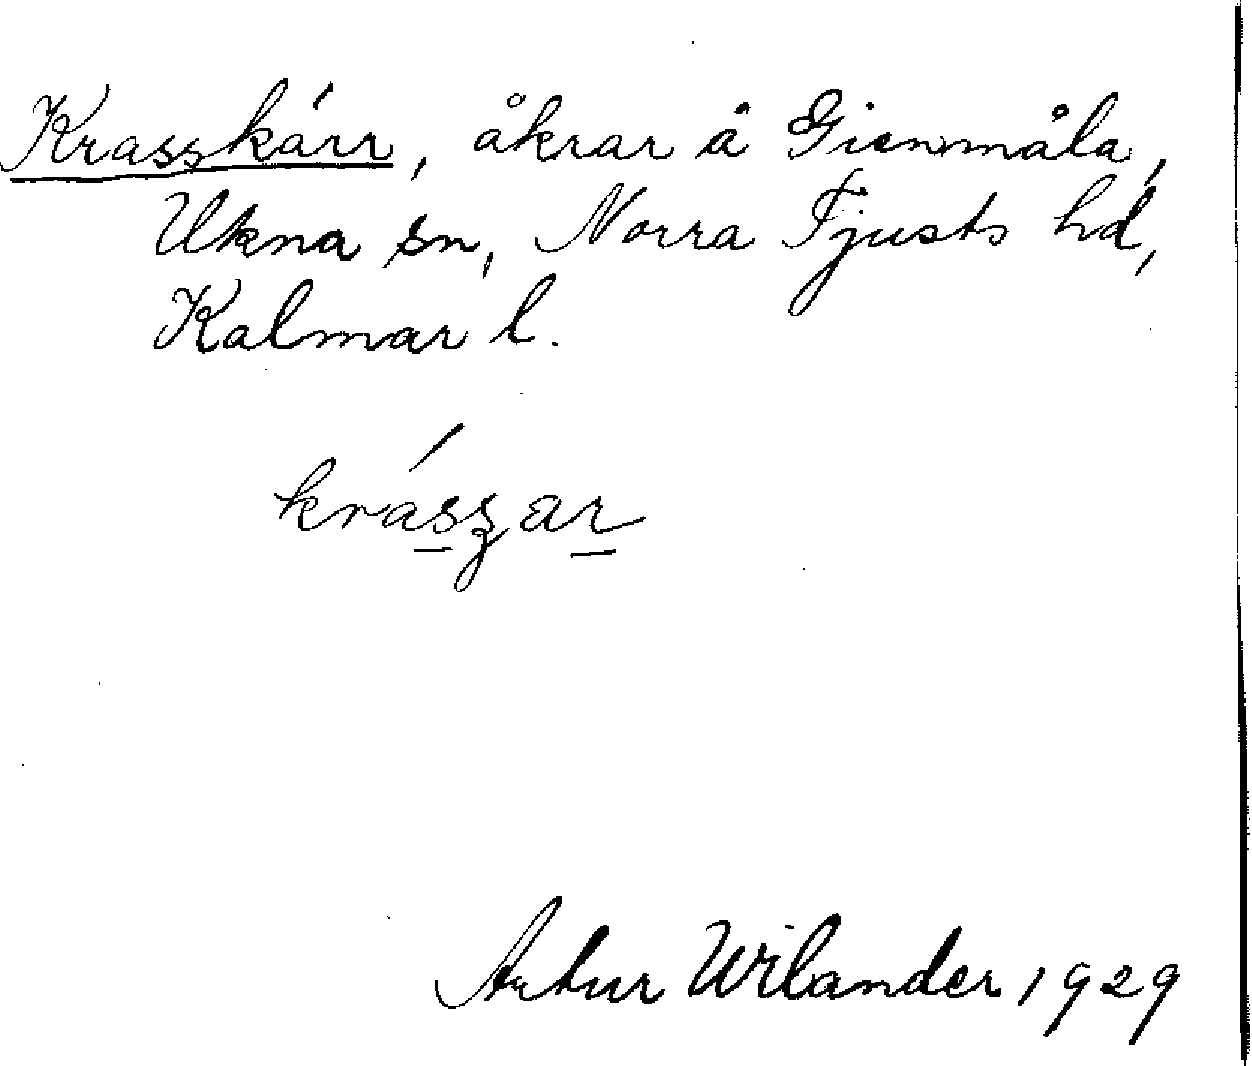 Kraszkárr, åkrar å Gienmåla,
Ukna sn, Norra Tjusts hd,
Kalmar l.
krászar
Artur Wilander 1929